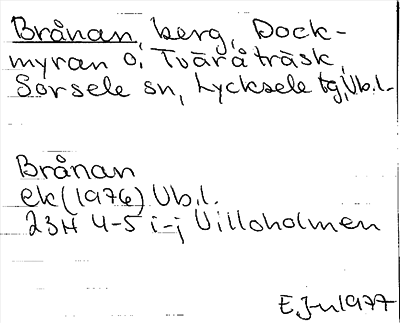 Brånan, berg, Dock-
myran o. Tväråträsk,
Sorsele sn, Lycksele tg, Vb.l.
Brånan
ek (1976) Vb.l.
23H 4-5 i-j Villoholmen
E.J-n 1977